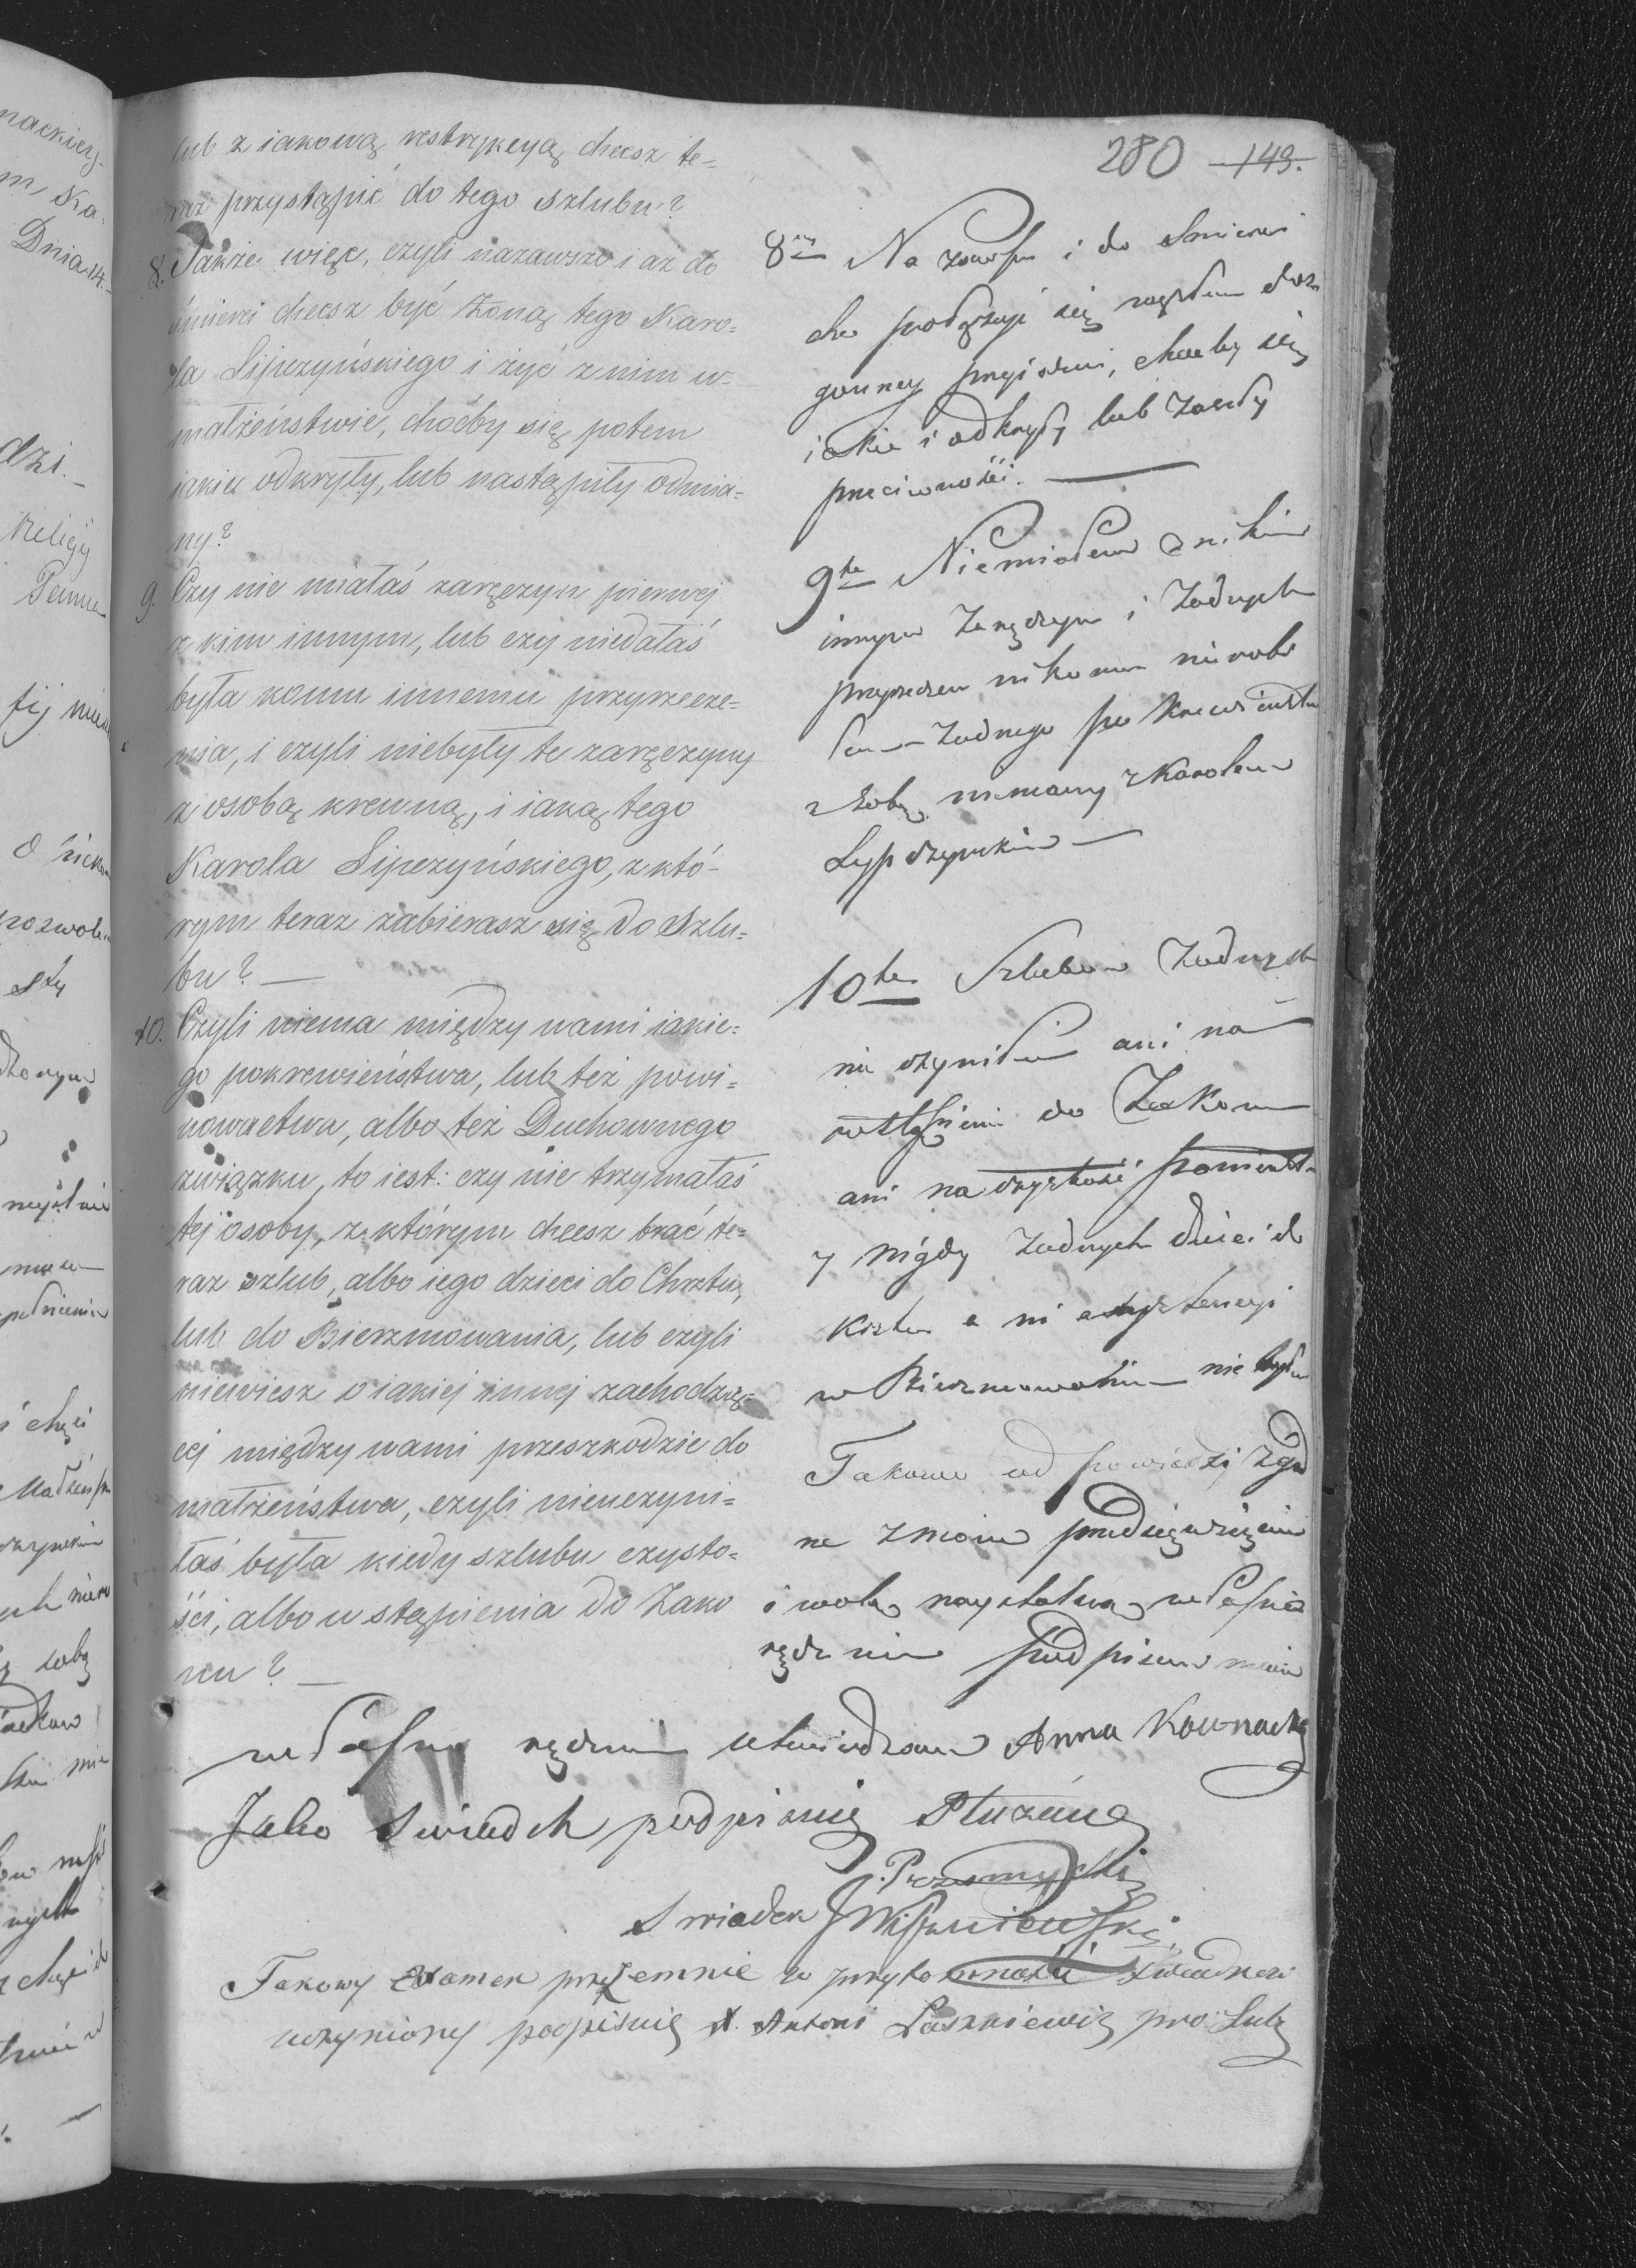 280 149.
lub z iakową restrykcyą chcesz te-
raz przystąpić do tego szlubu?
8. Także więc, czyli nazawsze i aż do
śmierci chcesz być żoną tego Karo-
la Lipczyńskiego i żyć z nim w-
małżeństwie, choćby się potem
iakie odkryły, lub nastąpiły odmia-
ny?
9. Czy nie miałaś zaręczyn pierwej
z kim innym, lub czy niedałaś
była komu innemu przyrzecze-
nia, i czyli niebyły te zaręczyny
z osobą krewną, i iaką tego
Karola Lipczyńskiego, z któ-
rym teraz zabierasz się do Szlu-
bu? —
10. Czyli niema między wami iakie-
go pokrewieństwa, lub też powi-
nowactwa, albo też Duchownego
związku, to iest: czy nie trzymałaś
tej osoby, z którym chcesz brać te-
raz szlub, albo iego dzieci do Chrztu,
lub do Bierzmowania, lub czyli
niewiesz o iakiej innej zachodzą-
cej między wami przeszkodzie do
małżeństwa, czyli nieuczyni-
łaś była kiedy szlubu czysto-
ści, albo wstąpienia do Zako
nu? —
8 Na zawsze i do Smierci
chce się
gonney przyiazni, chociby się
iakie i odkryły lub zaszły
przeciwności. —
9te Niemiałem z nikim
innym Zaręczyn i Żadnych
przyrzeczen nikomu nierobi
łem — Żadnego po Krewienstwa
z sobą niemamy z Karolem
Lypczynskim —
10te Szlubow Żadnych
nie czyniłam ani na
wstąpienie do Zakonu
ani na czystość
y nigdy Żadnych dzieci do
Krztu a ni assystencyi
w Bierzmowaniu nie była
Takowe odpowiedzi Zgod
ne z moim przedsięwzięciem
i wolą własną
ręcznie Podpisem moim
własno ręcznim utwierdzam Anna Kownacka
Jako Swiadek podpisuię
Swiadek
Takowy Examen przezemnie w przytomności Swiadkow
uczyniony podpisuię X. Antoni Laszkiewicz pro: Lub